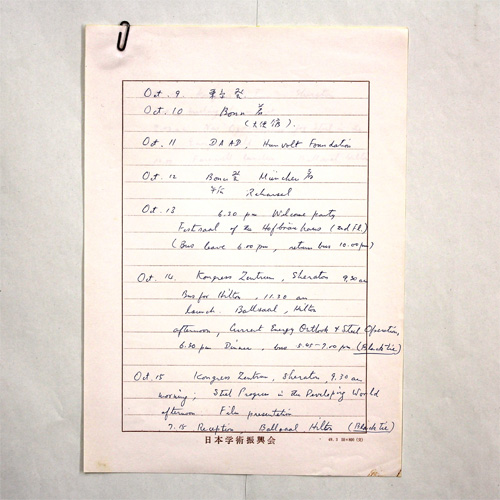 Oct. 9 東京発
Oct. 10 Bonn 着
(大使館).
Oct. 11 DAAD, Humvolt Foundation
Oct. 12 Bonn発 München着
午后 Rehearsel
Oct. 13 6.30 pm Welcome party
Festsaal of the Hofbräuhaus (2nd Fl.)
(Bus leave 6.00 pm, return bus 10.00 pm)
Oct. 14. Kongress Zentrum, Sheraton 9.30 am
Bus for Hilton, 11.30 am
Lunch. Ballsaal, Hilton
afternoon, Current Energy Outlook & Steel Operation,
6.30 pm Dinner, bus 5.45-7.00 pm. (Black tie)
Oct. 15 Kongress Zentrum, Sheraton. 9.30 am
morning; Steel Progress in the Developing World
afternoon Film presentation
7.15 Reception, Ballsaal, Hilton (Black tie)
日本学術振興会